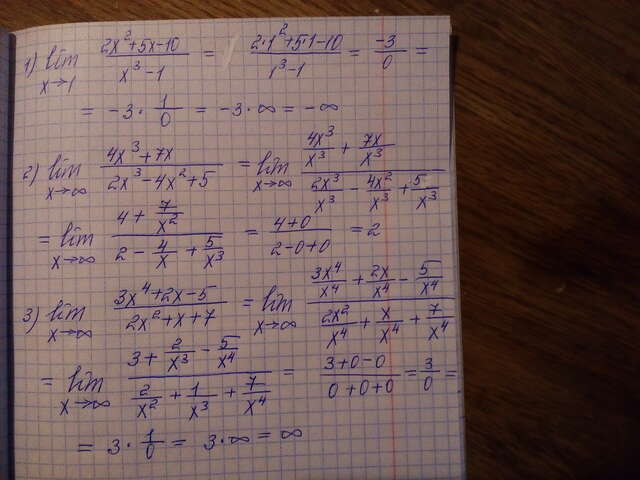 1) lim x→1 (2x²+5x-10)/(x³-1) = (2·1²+5·1-10)/(1³-1) = -3/0 =
= -3 · 1/0 = -3·∞ = -∞
2) lim x→∞ (4x³+7x)/(2x³-4x²+5) = lim x→∞ (4x³/x³ + 7x/x³)/(2x³/x³ - 4x²/x³ + 5/x³)
= lim x→∞ (4 + 7/x²)/(2 - 4/x + 5/x³) = (4+0)/(2-0+0) = 2
3) lim x→∞ (3x⁴+2x-5)/(2x²+x+7) = lim x→∞ (3x⁴/x⁴ + 2x/x⁴ - 5/x⁴)/(2x²/x⁴ + x/x⁴ + 7/x⁴)
= lim x→∞ (3 + 2/x³ - 5/x⁴)/(2/x² + 1/x³ + 7/x⁴) = (3+0-0)/(0+0+0) = 3/0 =
= 3 · 1/0 = 3·∞ = ∞